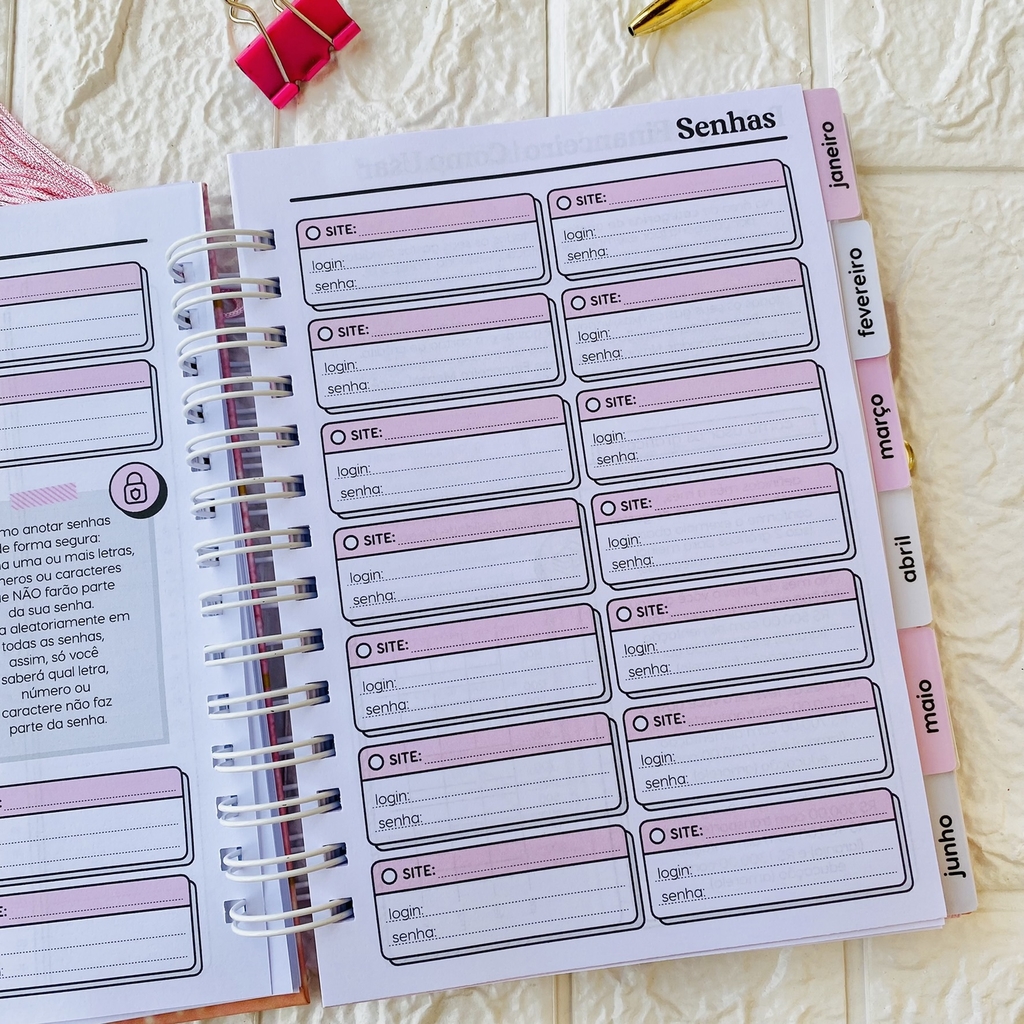 mo anotar senhas
e forma segura:
a uma ou mais letras,
meros ou caracteres
e NÃO farão parte
da sua senha.
a aleatoriamente em
todas as senhas,
assim, só você
saberá qual letra,
número ou
caractere não faz
parte da senha.
Senhas
SITE:
login:
senha:
SITE:
login:
senha:
SITE:
login:
senha:
SITE:
login:
senha:
SITE:
login:
senha:
SITE:
login:
senha:
SITE:
login:
senha:
SITE:
login:
senha:
SITE:
login:
senha:
SITE:
login:
senha:
SITE:
login:
senha:
SITE:
login:
senha:
SITE:
login:
senha:
SITE:
login:
senha:
janeiro
fevereiro
março
abril
maio
junho